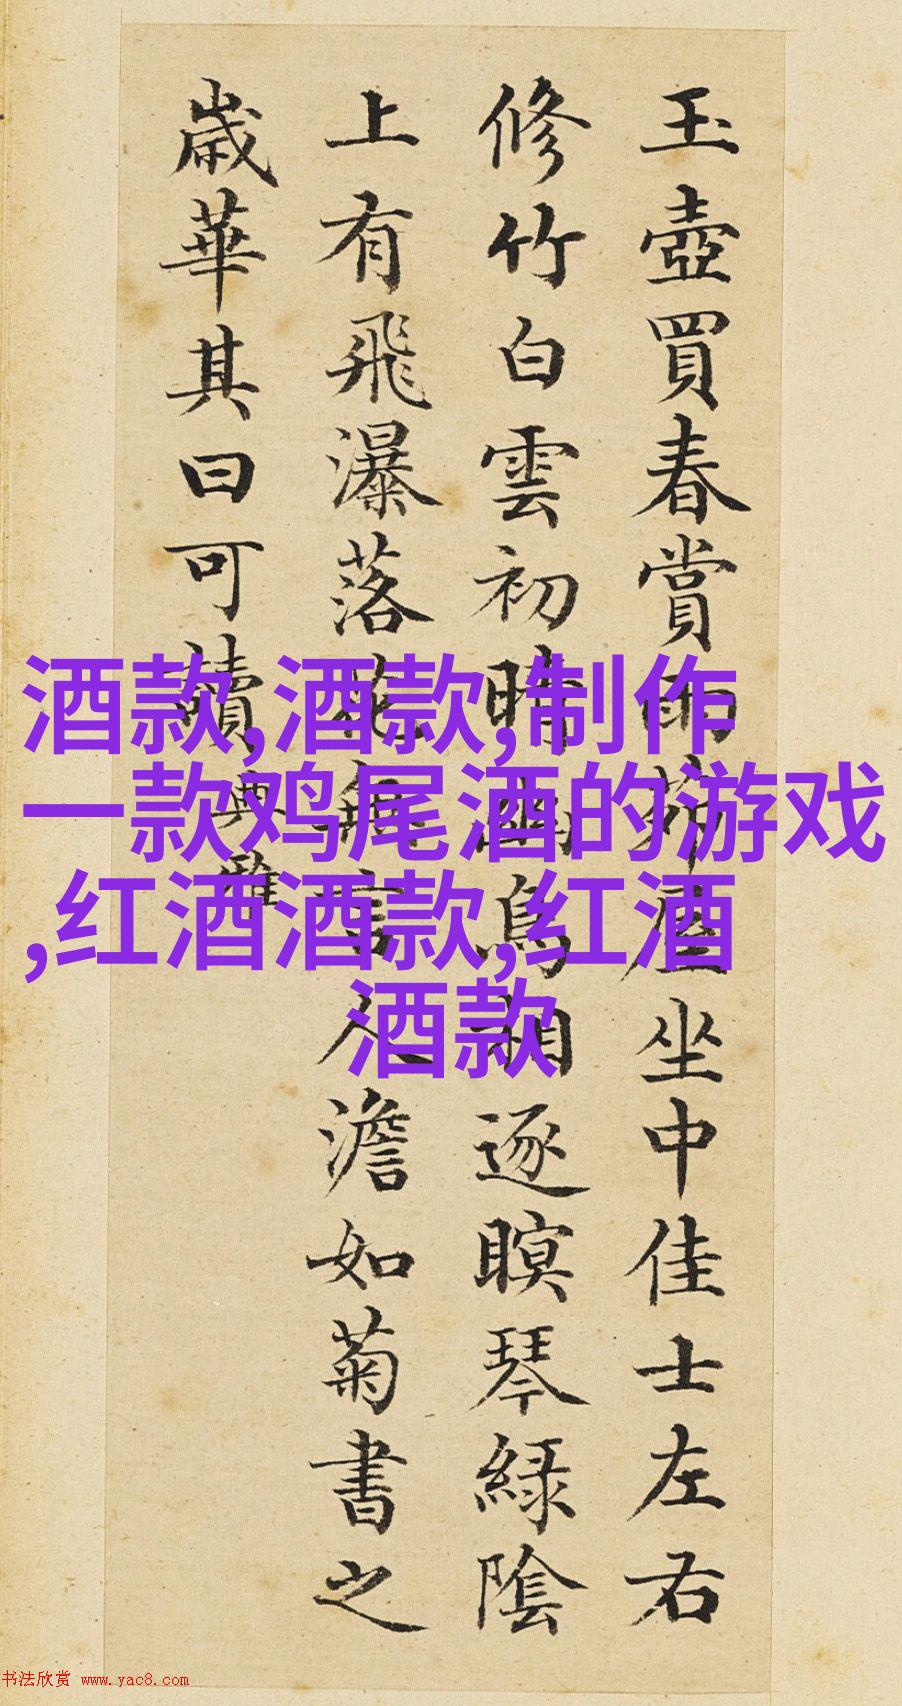 玉壺買春賞雨茆屋坐中佳士左右
修竹白雲初晴幽鳥相逐瞑琴綠陰
上有飛瀑落花無言人澹如菊書之
歲華其曰可讀
典雅
酒款,酒款,制作
一款鸡尾酒的游戏
,红酒酒款,红酒
酒款
书法欣赏 www.yac8.com